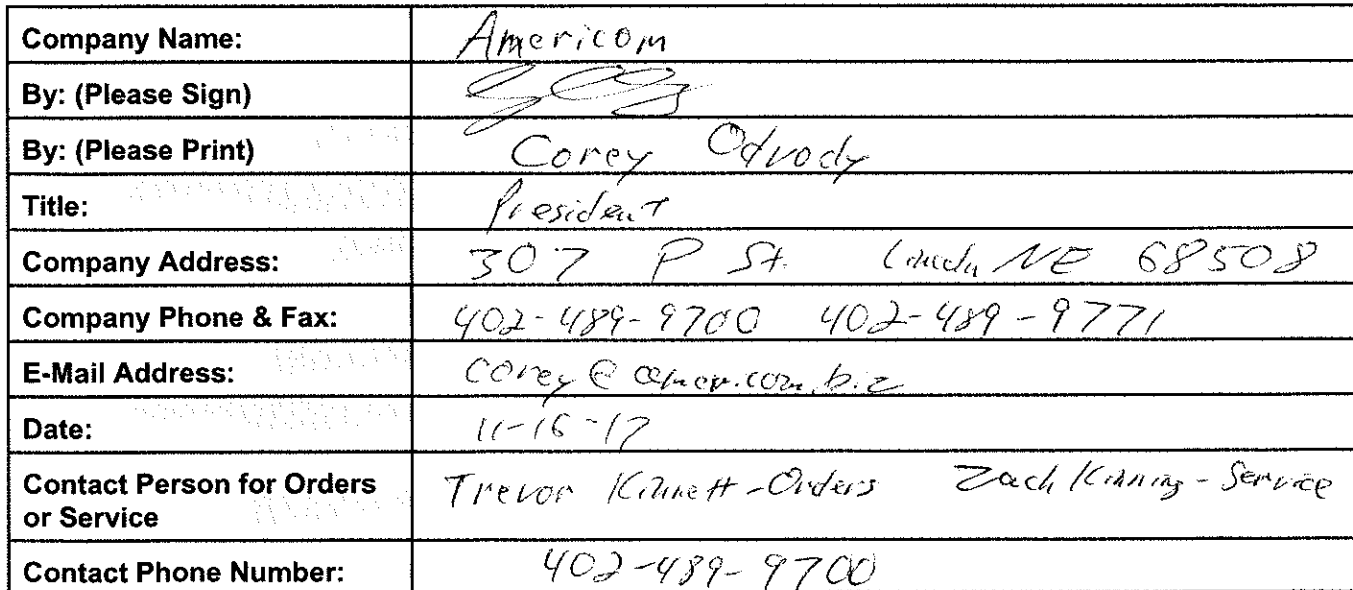 Company Name: Americom
By: (Please Sign)
By: (Please Print) Corey Odvody
Title: President
Company Address: 307 P St. Lincoln NE 68508
Company Phone & Fax: 402-489-9700 402-489-9771
E-Mail Address: corey@americom.biz
Date: 11-16-17
Contact Person for Orders Trevor Kinnett-Orders Zach Kinning-Service
or Service
Contact Phone Number: 402-489-9700